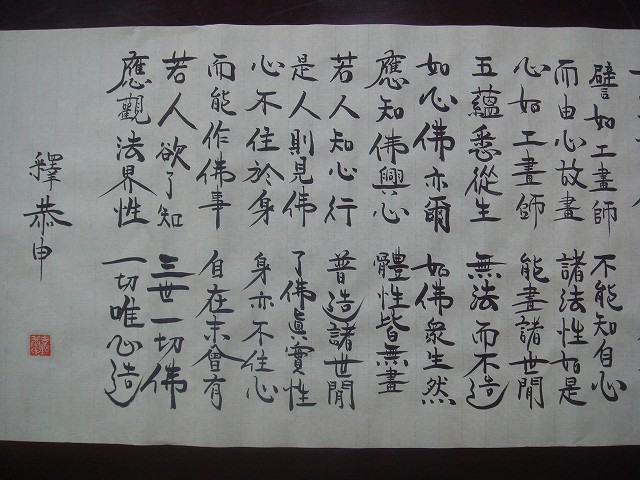 譬如工畫師 不能知自心
而由心故畫 諸法性如是
心如工畫師 能畫諸世間
五蘊悉從生 無法而不造
如心佛亦爾 如佛眾生然
應知佛與心 體性皆無盡
若人知心行 普造諸世間
是人則見佛 了佛眞實性
心不住於身 身亦不住心
而能作佛事 自在未曾有
若人欲了知 三世一切佛
應觀法界性 一切唯心造
釋恭申